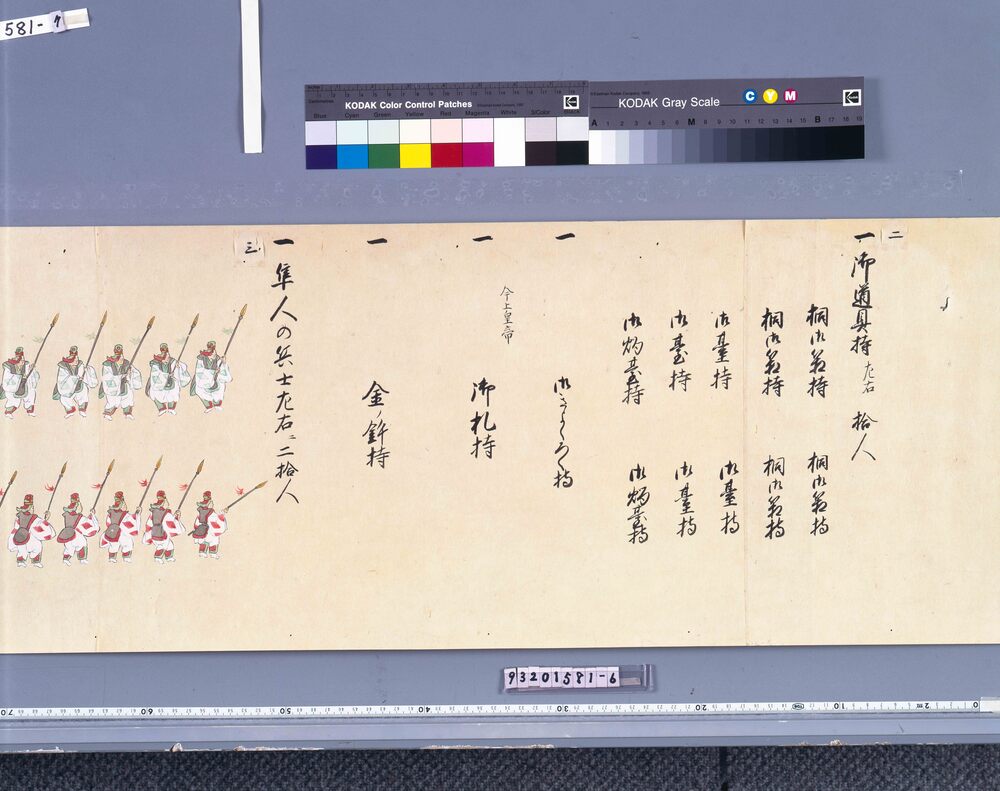 581-7
KODAK Color Control Patches
Blue Cyan Green Yellow Red Magenta White 3/Color Black
KODAK Gray Scale
C Y M
A 1 2 3 4 5 6 M 8 9 10 11 12 13 14 15 B 17 18 19
二
一 御道具持 左右 拾人
桐御筥持 桐御筥持
桐御筥持 桐御筥持
御臺持 御臺持
御臺持 御臺持
御炳臺持 御炳臺持
一
一 今上皇帝 御札持
一 金ノ鉾持
三
一 隼人の兵士左右ニ二拾人
93201581-6
70 60 50 40 30 20 10 0